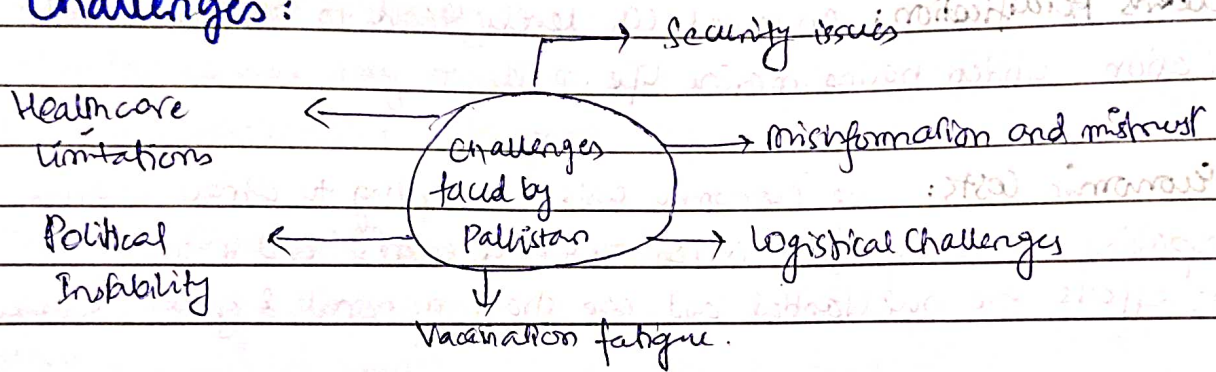 Challenges:
Security issues
Healthcare
limitations
Challenges
faced by
Pakistan
Misinformation and mistrust
Political
Instability
Logistical Challenges
Vaccination fatigue.